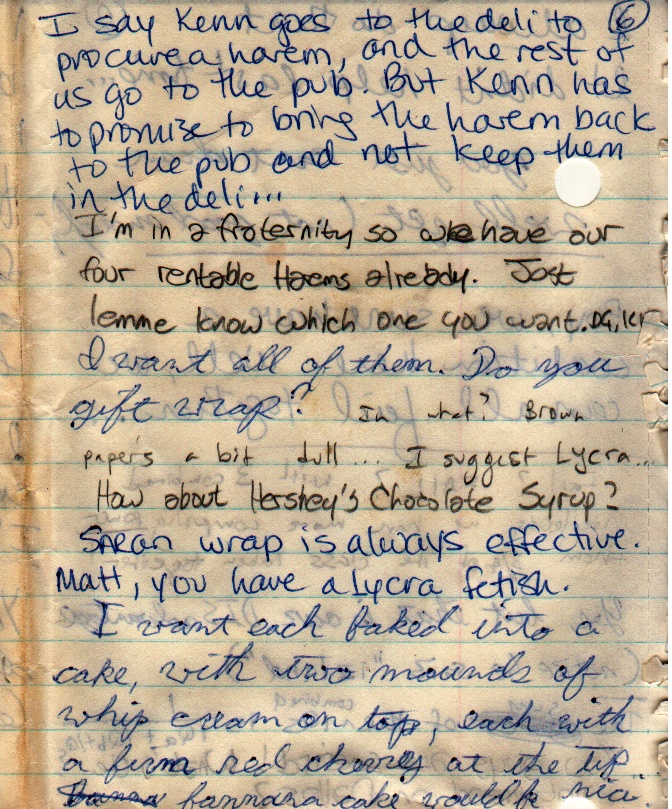 I say Kenn goes to the deli to 6
procure a harem, and the rest of
us go to the pub. But Kenn has
to promise to bring the harem back
to the pub and not keep them
in the deli...
I'm in a fraternity so we have our
four rentable Harems already. Just
lemme know which one you want. DG,
I want all of them. Do you
gift wrap? In what? Brown
paper's a bit dull... I suggest Lycra...
How about Hershey's Chocolate Syrup?
Saran wrap is always effective.
Matt, you have a Lycra fetish.
I want each baked into a
cake, with two mounds of
whip cream on top, each with
a firm red cherry at the tip...
bannana cake would be nice